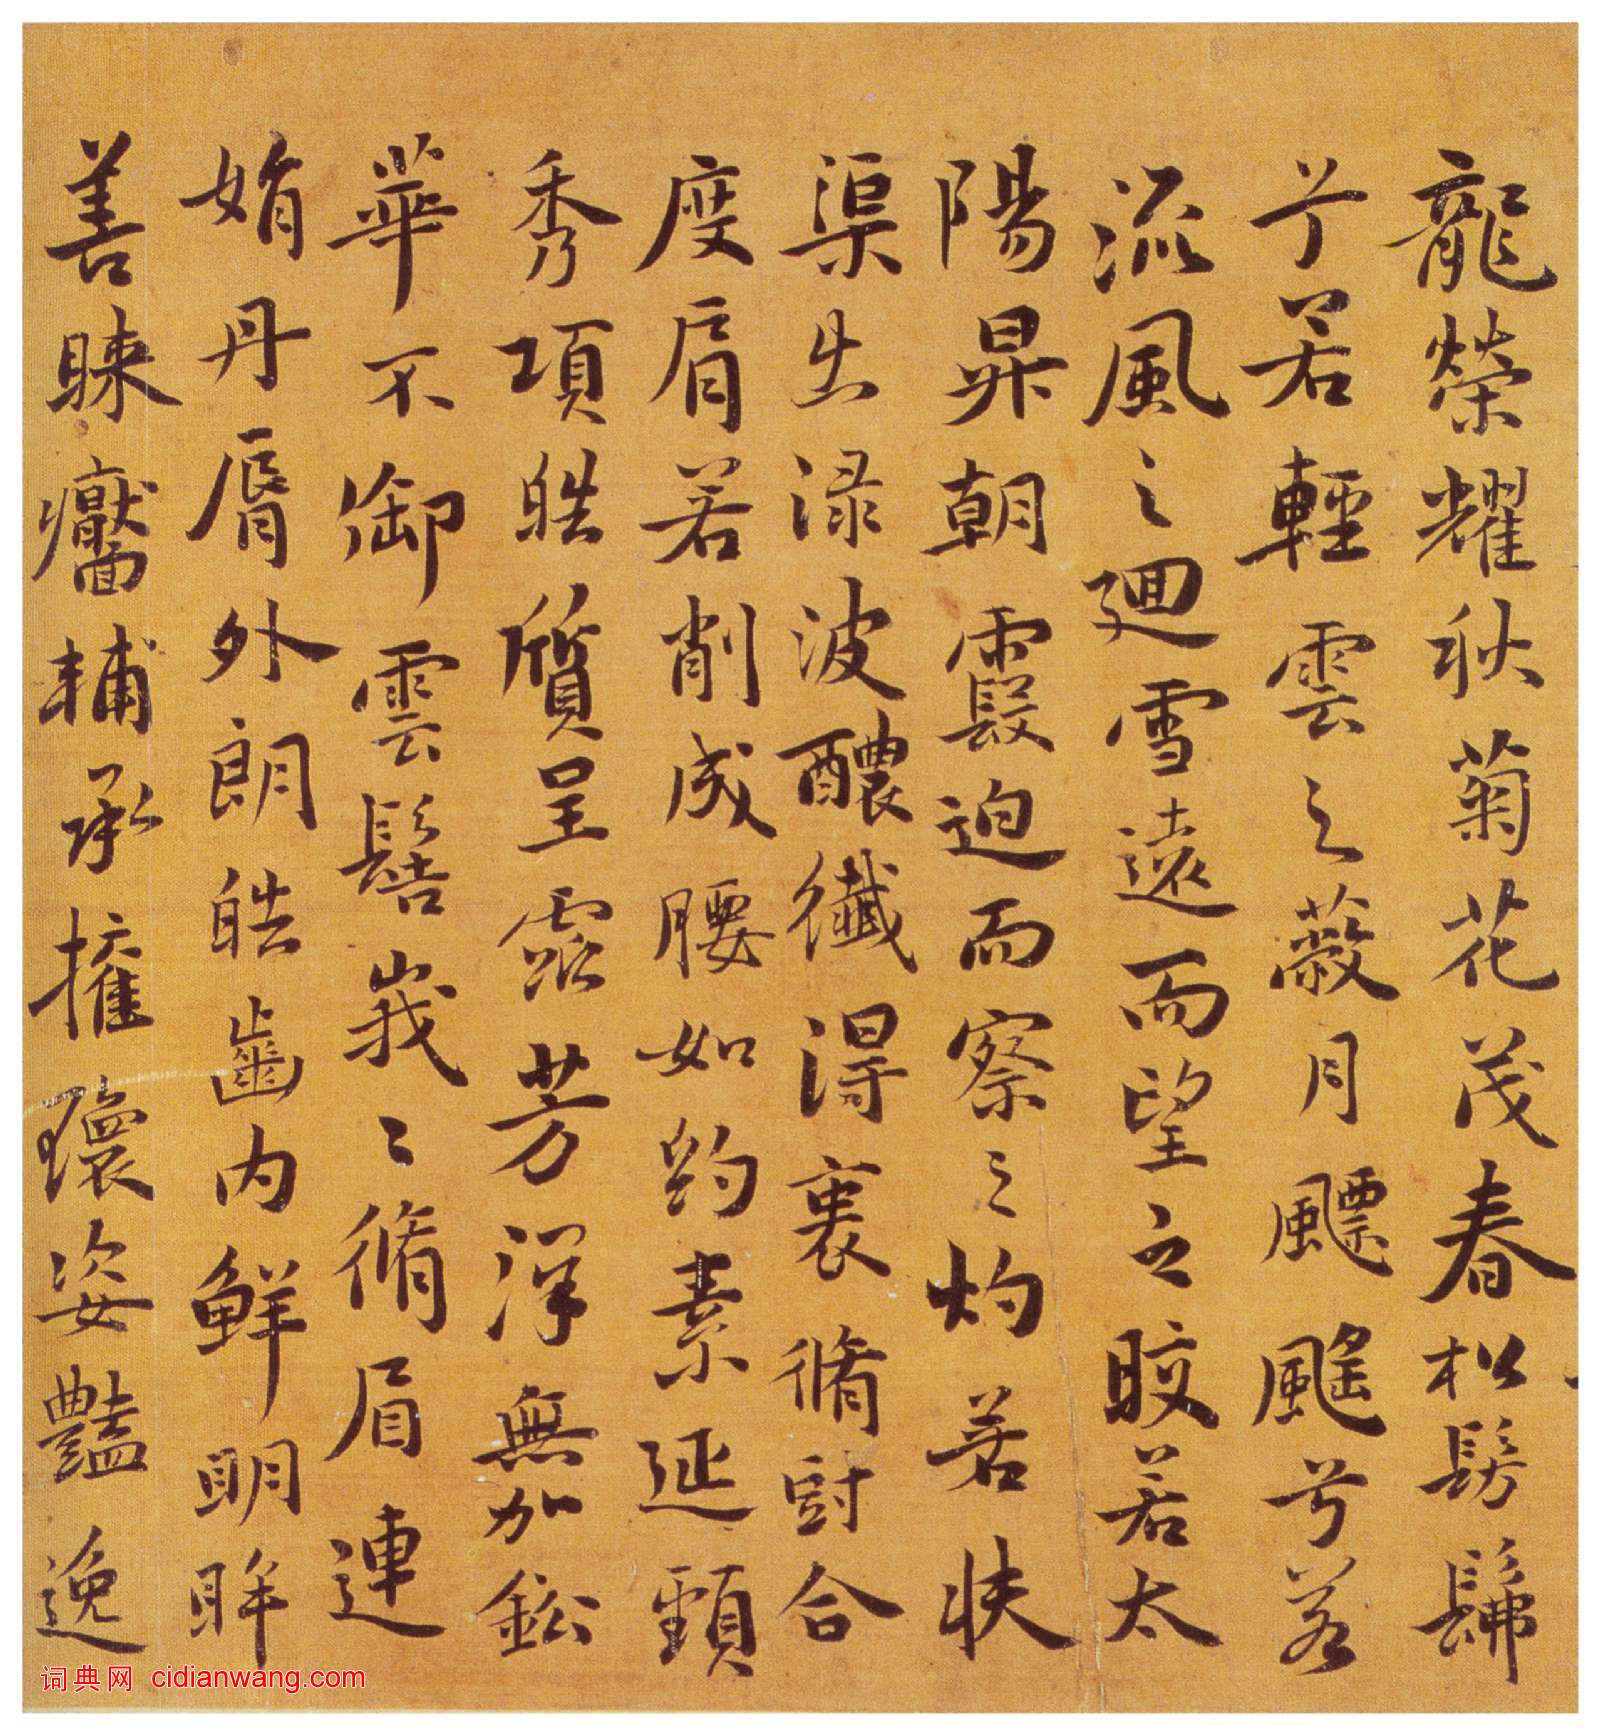 龍榮耀秋菊花茂春松髣髴
兮若輕雲之蔽月飃颻兮若
流風之廻雪遠而望之晈若太
陽昇朝霞迫而察之灼若扶
渠出渌波醲纖得衷脩短合
度肩若削成腰如約素延頸
秀項皓質呈露芳澤無加鈆
華不御雲髻峩〻脩眉連
娟丹脣外朗皓齒内鮮明眸
善睞靨輔承權瓌姿豔逸
词典网 cidianwang.com